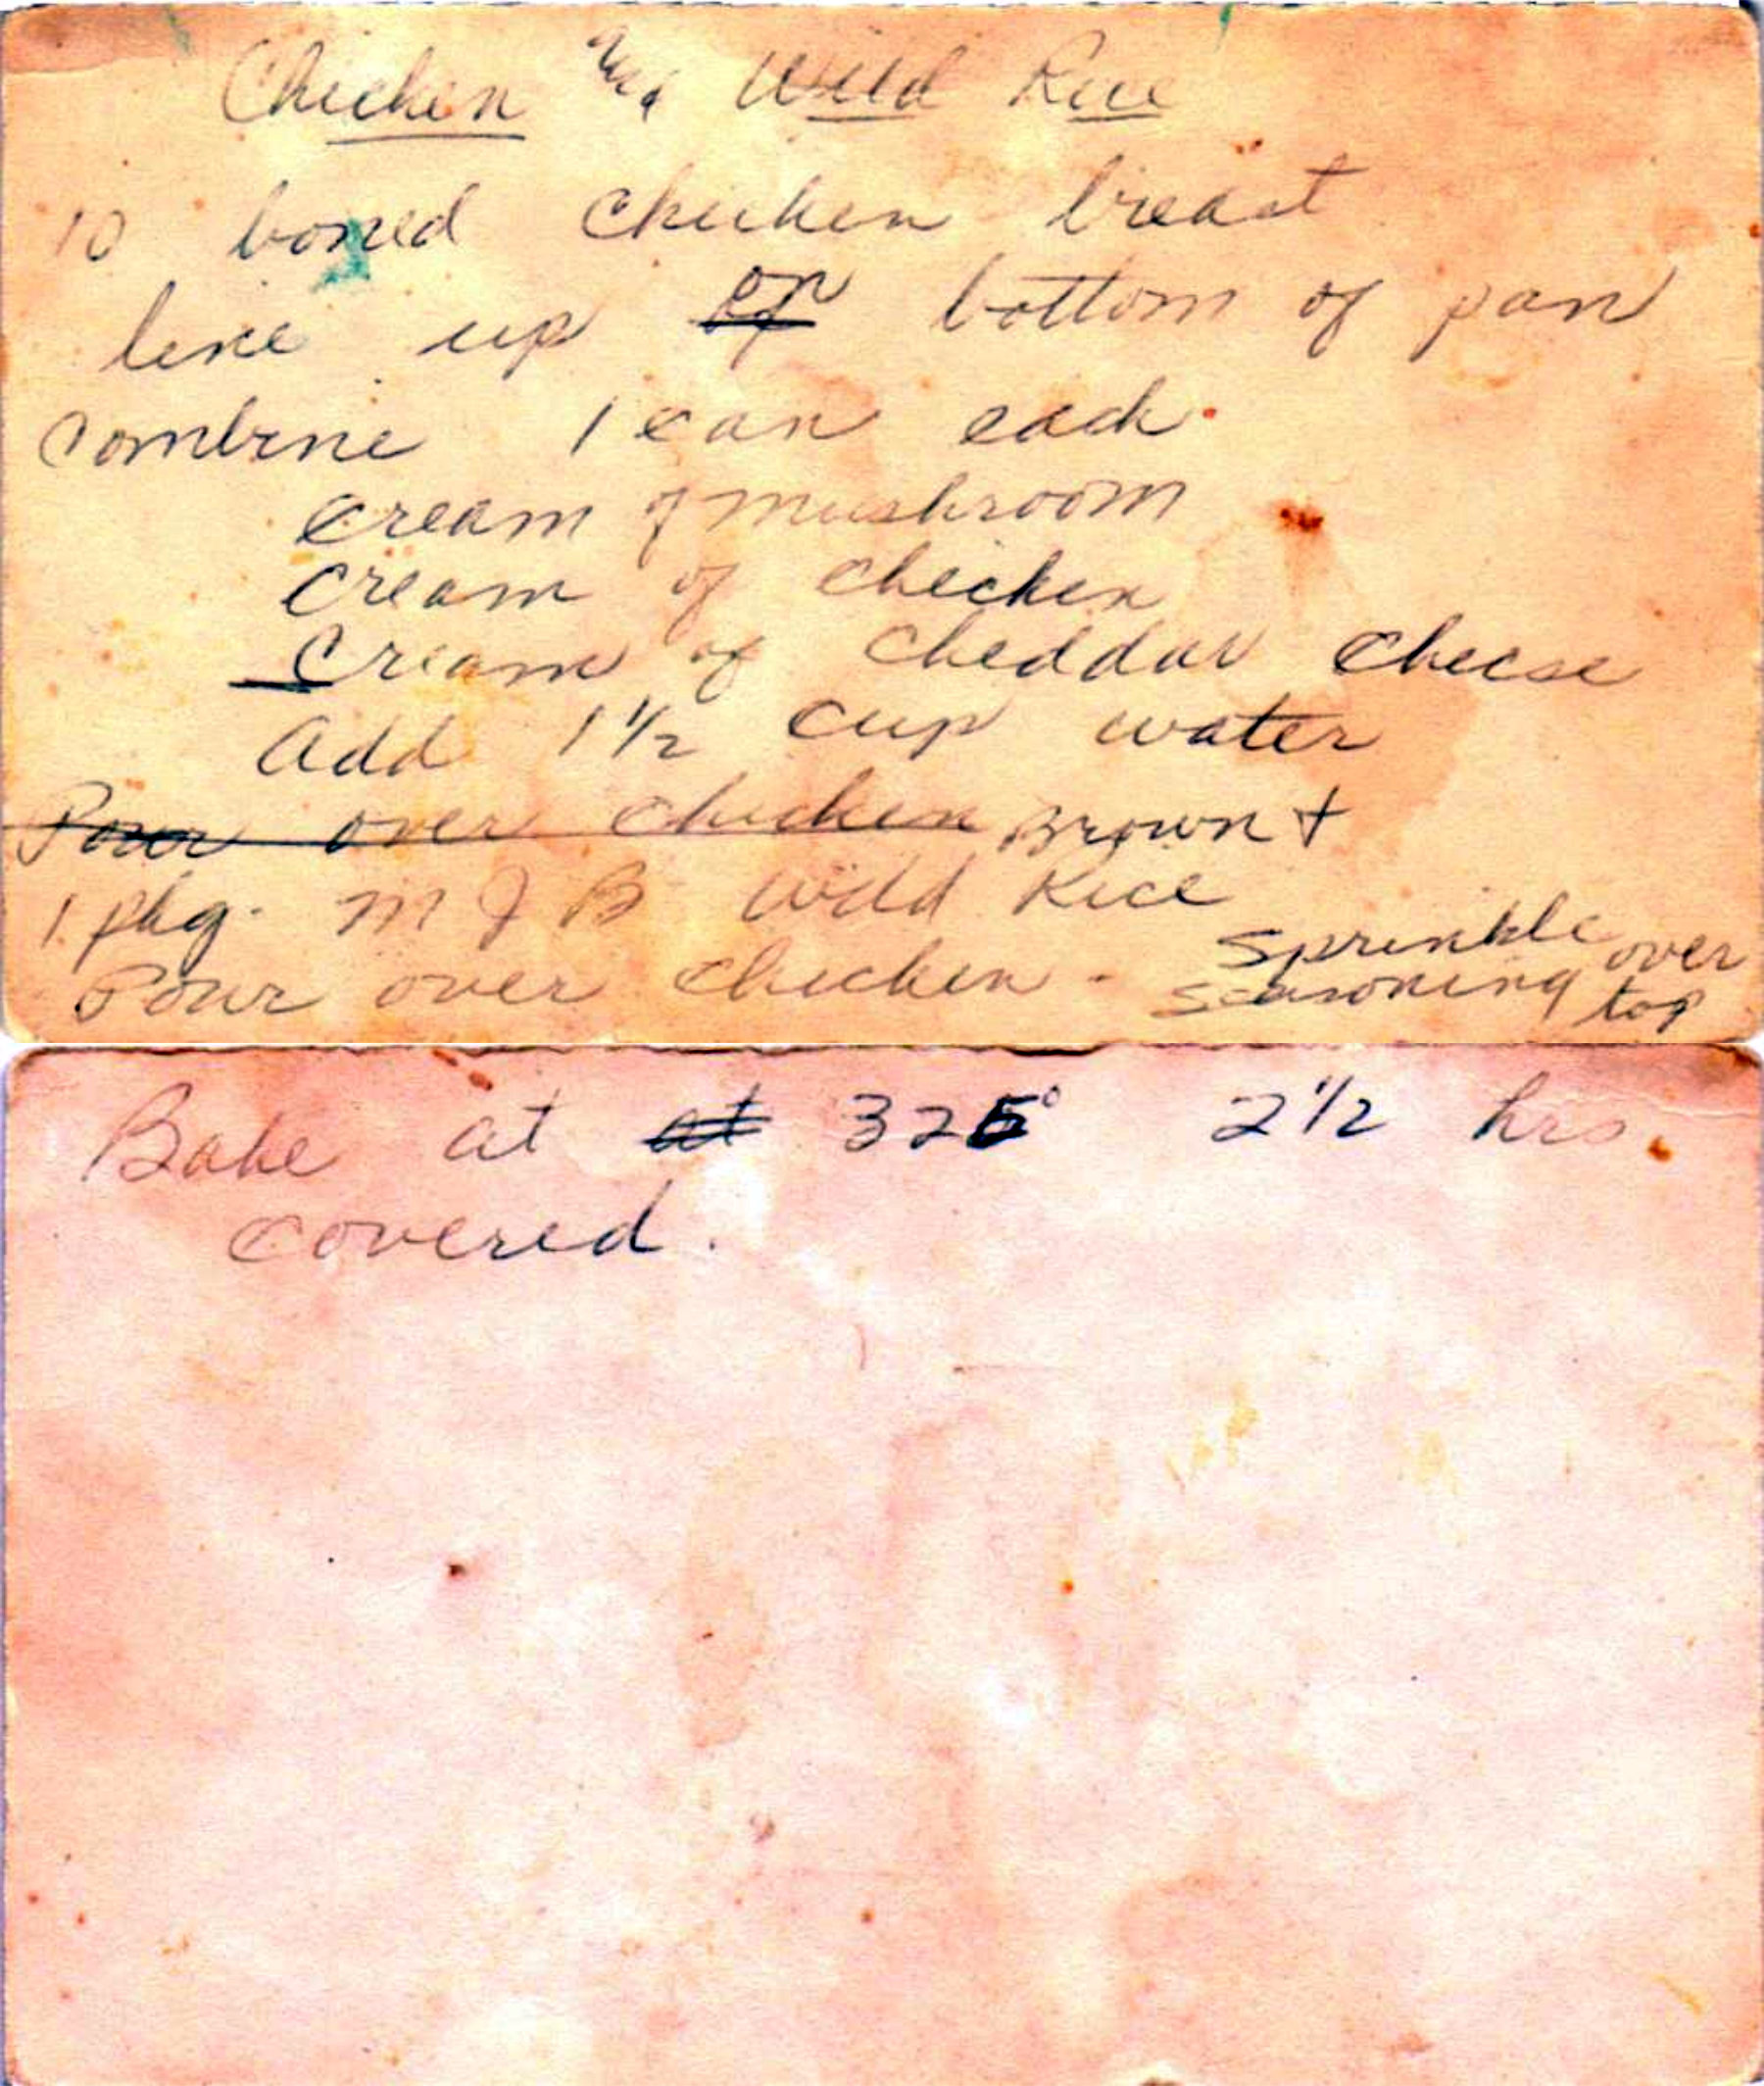 Chicken & Wild Rice
10 boned chicken breast
line up on bottom of pan
Combine 1 can each
cream of mushroom
cream of chicken
Cream of cheddar cheese
Add 1 1/2 cup water
Pour over chicken Brown +
1 pkg. MJB Wild Rice
Pour over chicken - Sprinkle over
seasoning top
Bake at at 325° 2 1/2 hrs.
covered.